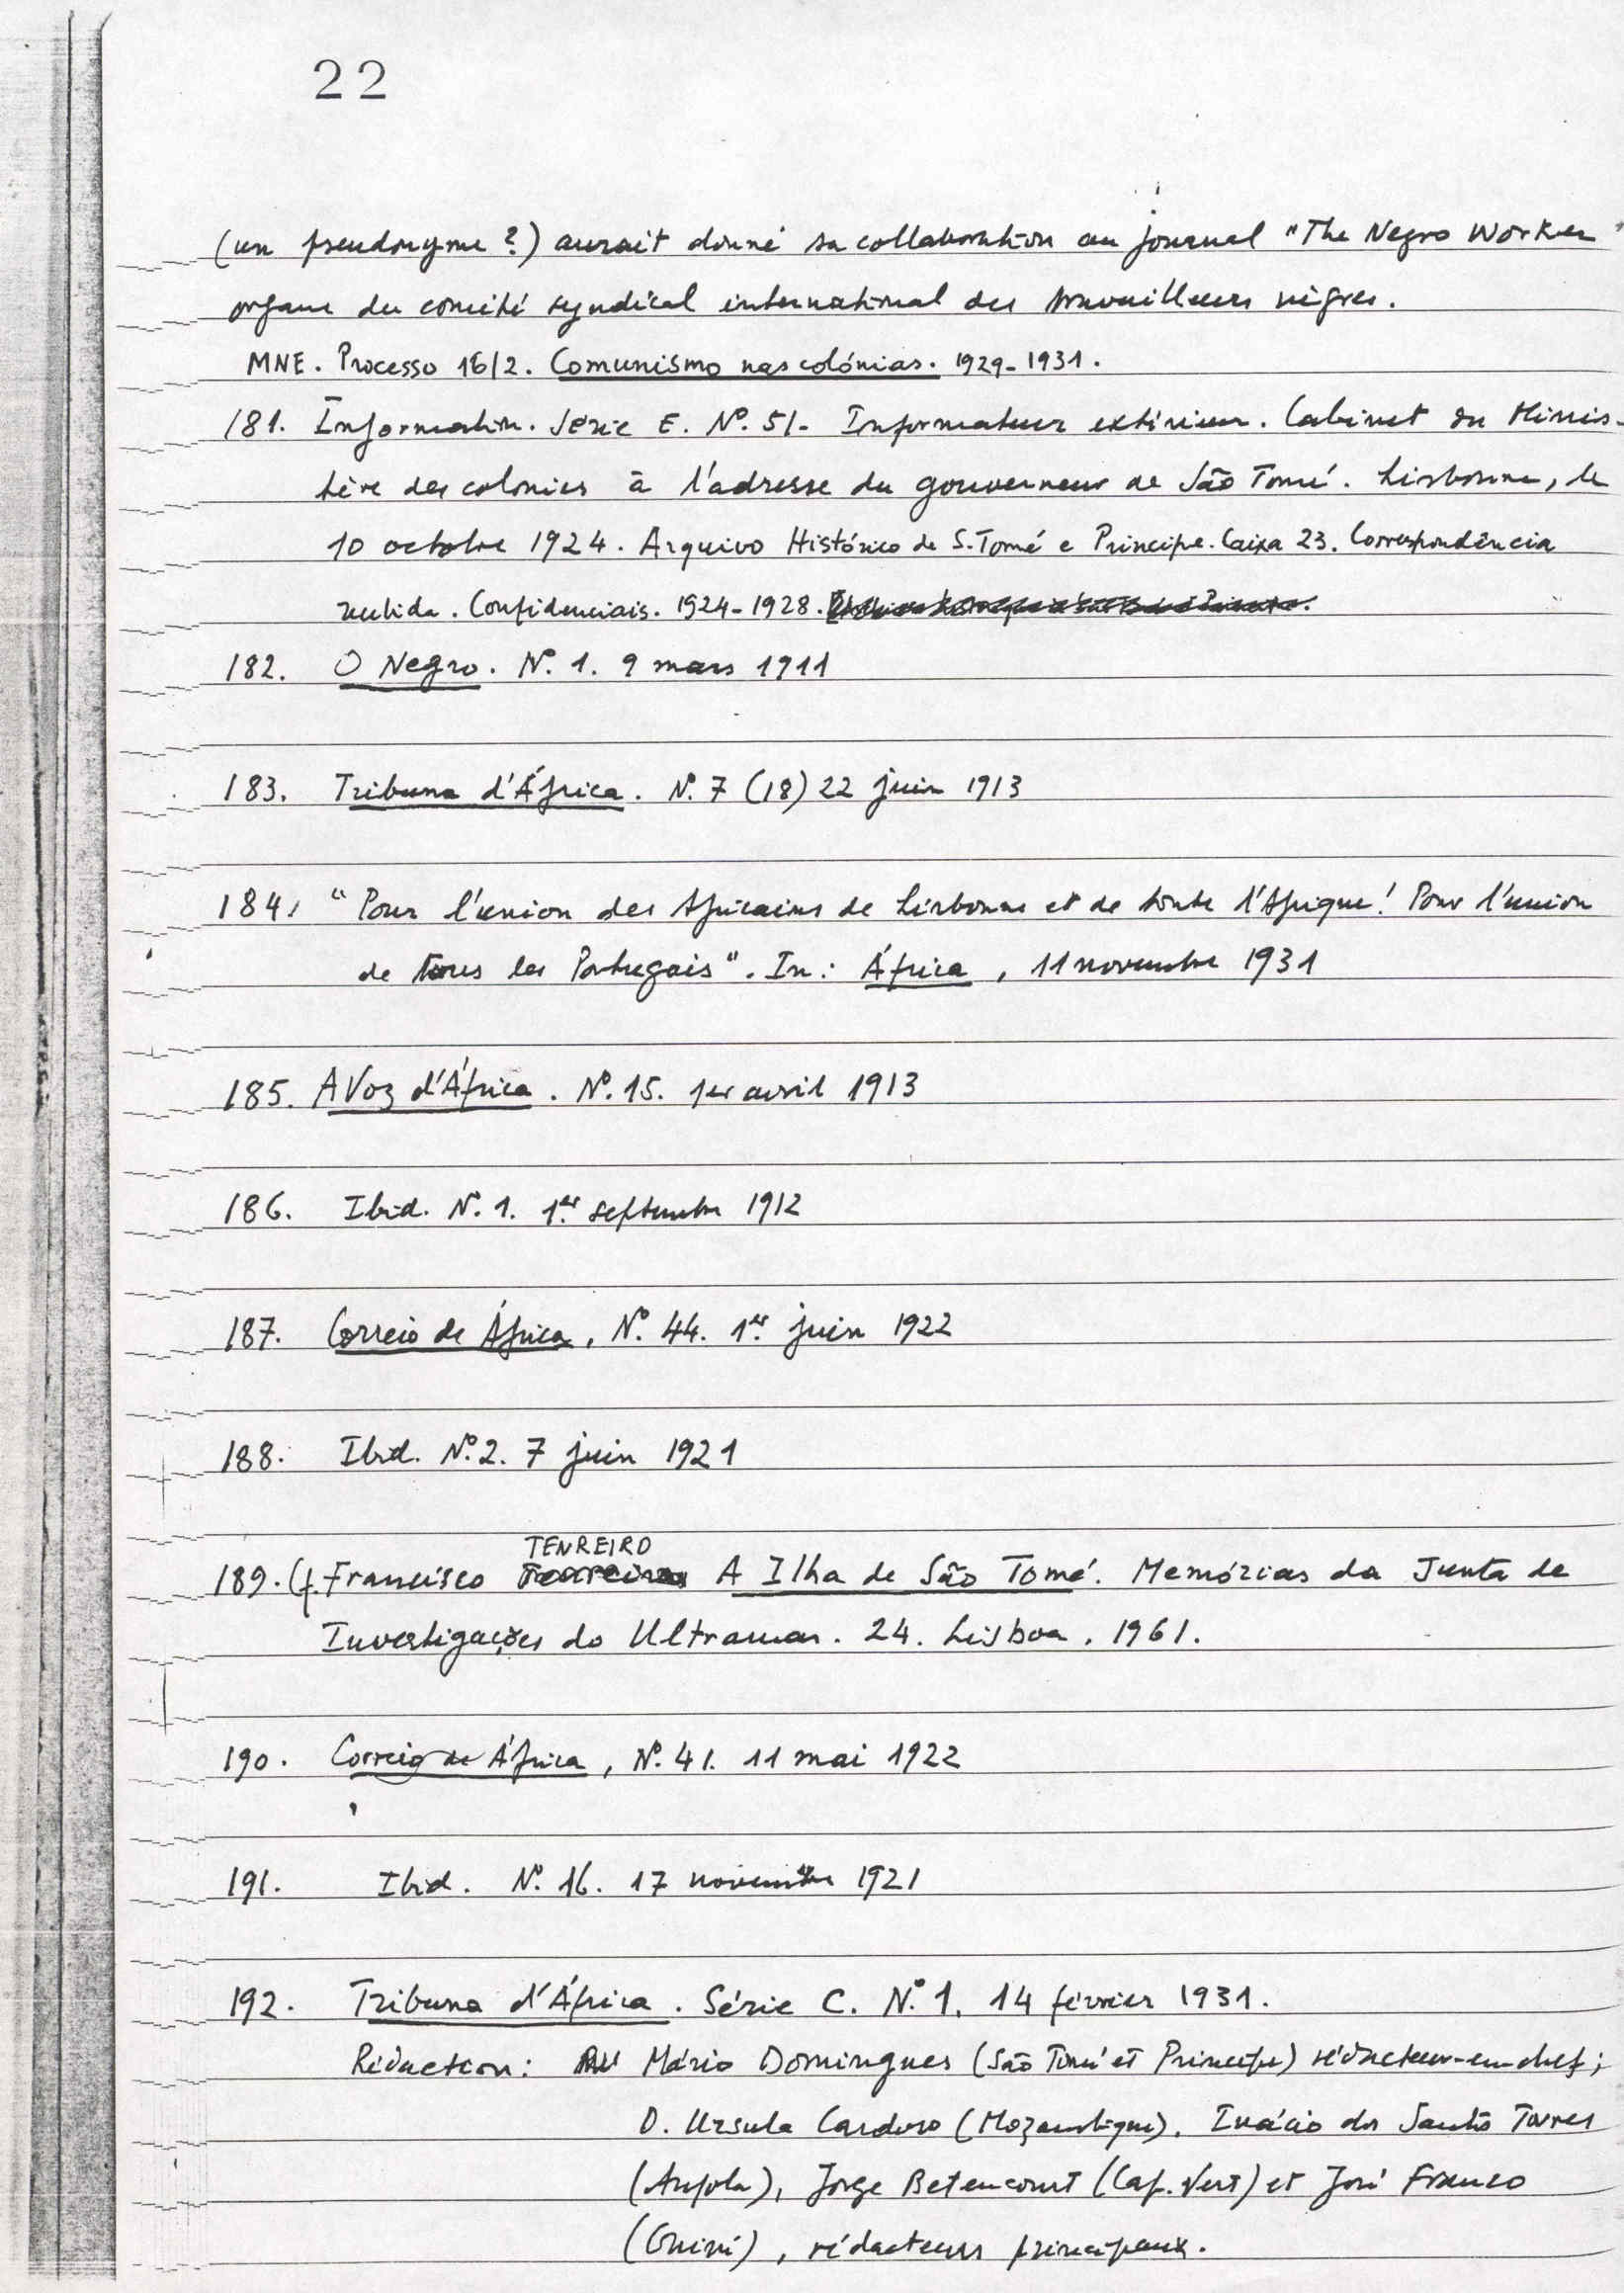 22
(un pseudonyme ?) aurait donné sa collaboration au journal "The Negro Worker"
organe du comité syndical international des travailleurs nègres.
MNE. Processo 16/2. Comunismo nas colónias. 1929-1931.
181. Information. Série E. Nº. 51- Informateur extérieur. Cabinet du Minis-
tère des colonies à l'adresse du gouverneur de São Tomé. Lisbonne, le
10 octobre 1924. Arquivo Histórico de S. Tomé e Principe. Caixa 23. Correspondência
recebida. Confidenciais. 1924-1928.
182. O Negro. Nº. 1. 9 mars 1911
183. Tribuna d'África. Nº. 7 (18) 22 juin 1913
184. "Pour l'union des Africains de Lisbonne et de toute l'Afrique! Pour l'union
de tous les Portugais". In: África, 11 novembre 1931
185. A Voz d'África. Nº. 15. 1er avril 1913
186. Ibid. Nº. 1. 1er septembre 1912
187. Correio de África, Nº. 44. 1er juin 1922
188. Ibid. Nº. 2. 7 juin 1921
TENREIRO
189. Cf. Francisco A Ilha de São Tomé. Memórias da Junta de
Investigações do Ultramar. 24. Lisboa. 1961.
190. Correio de África, Nº. 41. 11 mai 1922
191. Ibid. Nº. 16. 17 novembre 1921
192. Tribuna d'África. Série C. Nº. 1. 14 février 1931.
Rédaction: Mário Domingues (São Tomé et Principe) rédacteur-en-chef;
D. Ursula Cardoso (Mozambique), Inácio dos Santos Torres
(Angola), Jorge Betencourt (Cap. Vert) et José Franco
(Guiné), rédacteurs principaux.